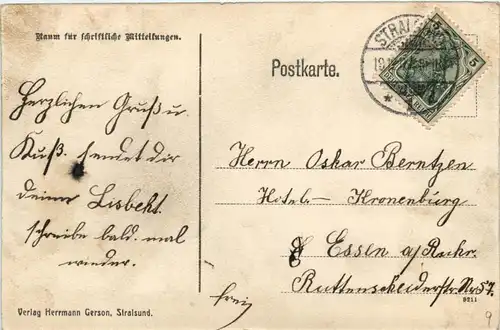 Raum für schriftliche Mitteilungen.
STRALSUND
5
Postkarte.
Herzlichen Gruß u.
Kuß. sendet dir
deine Lisbeht.
schreibe bald. mal
wieder.
Herrn Oskar Berntzen
Hotel – Kronenburg
Essen a/Ruhr.
Ruttenscheiderstr. No 57.
frei
Verlag Herrmann Gerson, Stralsund.
9211
9